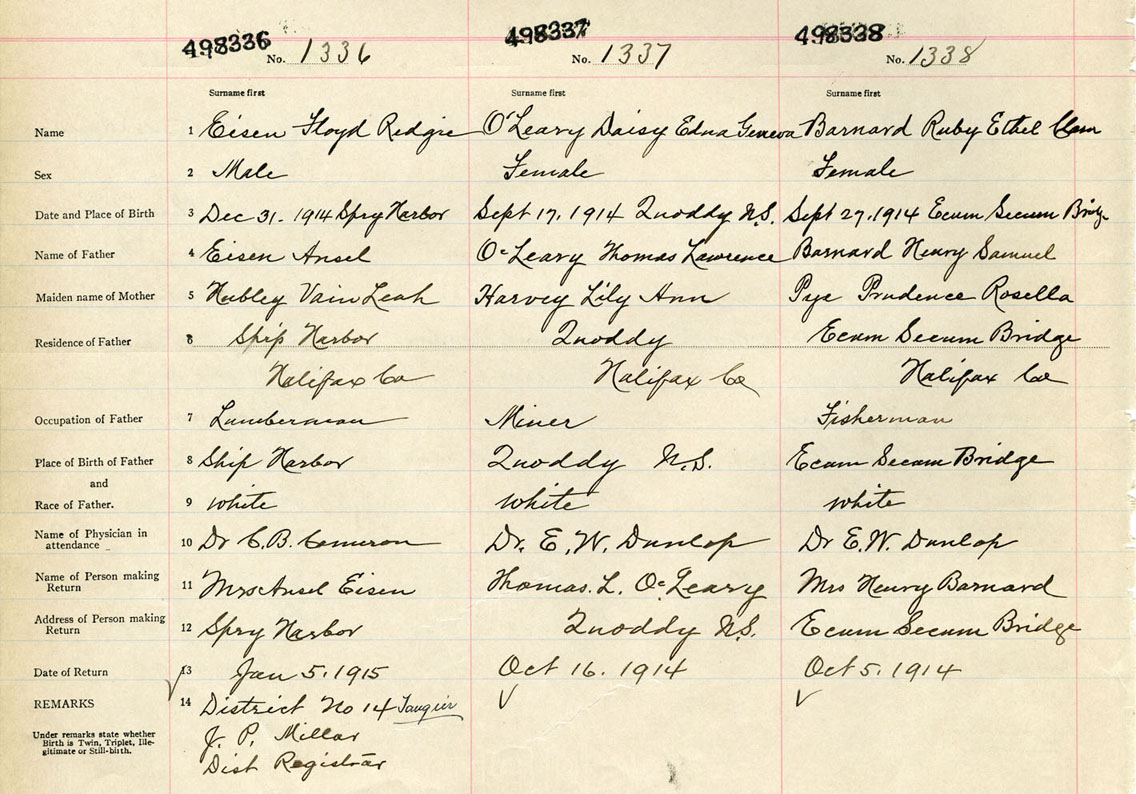 498336 498337 498338
No. 1336 No. 1337 No. 1338
Surname first Surname first Surname first
Name 1 Eisen Floyd Redgie O'Leary Daisy Edna Geneva Barnard Ruby Ethel
Sex 2 Male Female Female
Date and Place of Birth 3 Dec 31. 1914 Spry Harbor Sept 17. 1914 Quoddy N.S. Sept 27. 1914 Ecum Secum Bridge
Name of Father 4 Eisen Ansel O'Leary Thomas Lawrence Barnard Henry Samuel
Maiden name of Mother 5 Hubley Leah Harvey Lily Ann Pye Prudence Rosella
Residence of Father 6 Ship Harbor Quoddy Ecum Secum Bridge
Halifax Co Halifax Co Halifax Co
Occupation of Father 7 Lumberman Miner Fisherman
Place of Birth of Father 8 Ship Harbor Quoddy N.S. Ecum Secum Bridge
and
Race of Father. 9 white white white
Name of Physician in attendance 10 Dr C.B. Cameron Dr. E.W. Dunlop Dr E.W. Dunlop
Name of Person making Return 11 Mrs Ansel Eisen Thomas. L. O'Leary Mrs Henry Barnard
Address of Person making Return 12 Spry Harbor Quoddy N.S. Ecum Secum Bridge
Date of Return 13 Jan 5. 1915 Oct 16. 1914 Oct 5. 1914
REMARKS 14 District No 14 Tangier
Under remarks state whether J. P. Millar
Birth is Twin, Triplet, Ille-
gitimate or Still-birth. Dist Registrar